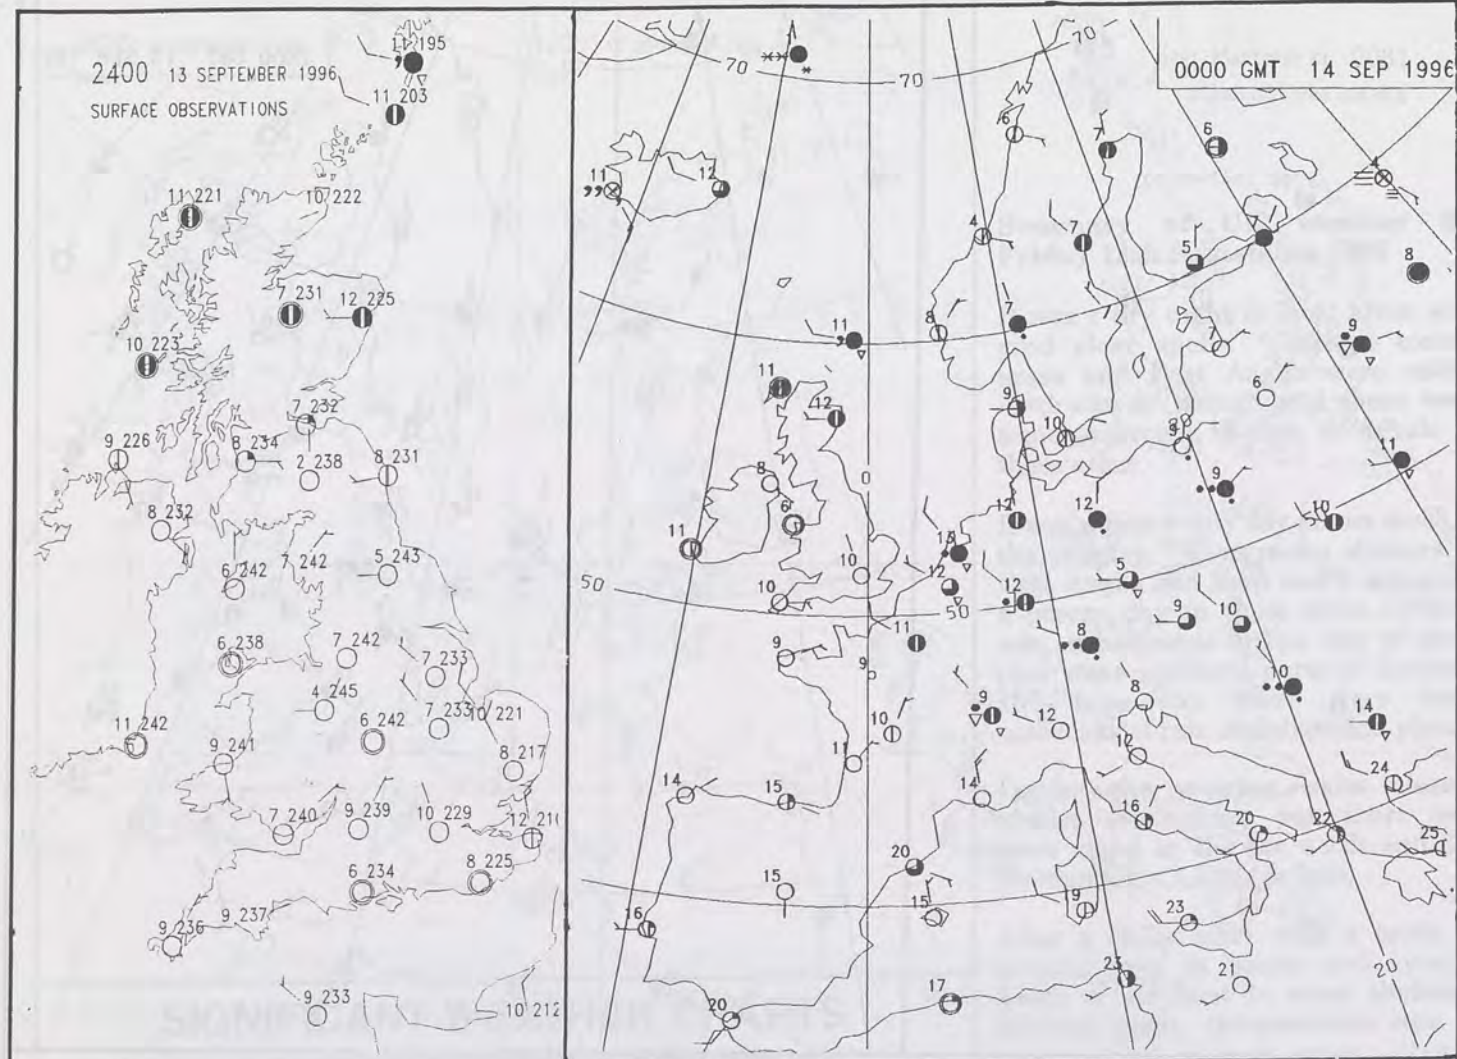 2400 13 SEPTEMBER 1996
SURFACE OBSERVATIONS
11 195
11 203
11 221
10 222
7 231
12 225
10 223
7 232
9 226
8 234
2 238
8 231
8 232
6 242
7 242
5 243
6 238
7 242
7 233
4 245
7 233
10 221
11 242
9 241
6 242
8 217
7 240
9 239
10 229
12 210
6 234
8 225
9 236
9 237
9 233
10 212
0000 GMT 14 SEP 1996
70
70
70
6
7
6
4
11
12
4
7
5
7
8
8
7
7
9
11
11
12
9
10
6
8
9
11
8
0
6
12
12
9
10
11
10
13
12
12
5
10
50
50
9
10
11
8
9
9
8
10
9
12
14
10
11
12
24
14
15
14
16
20
22
25
20
15
15
16
19
23
23
21
20
17
20